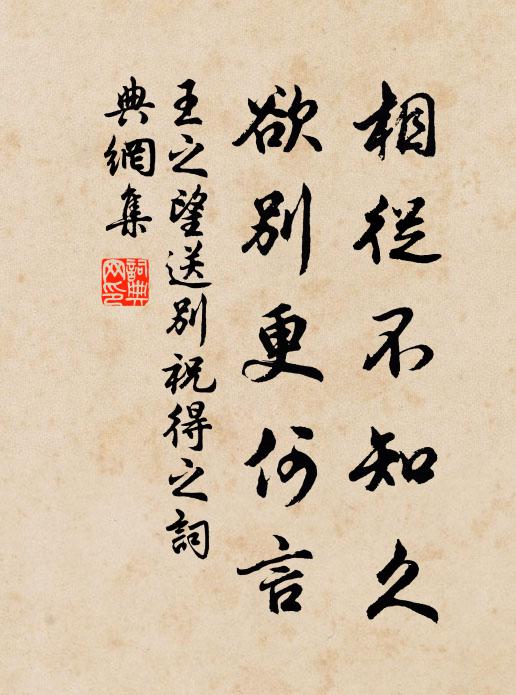 相從不知久
欲別更何言
王之望送別祝得之詞
典網集
詞典網印